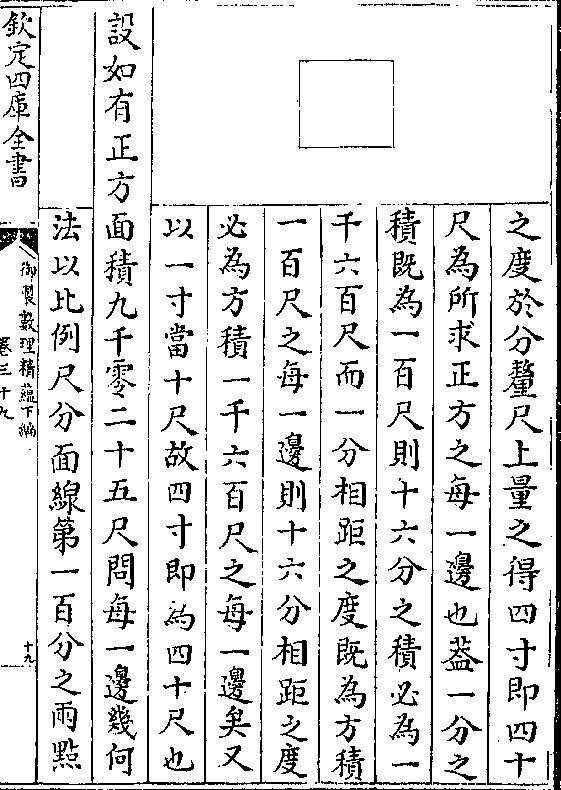 之度於分釐尺上量之得四寸即四十
尺為所求正方之每一邊也葢一分之
積既為一百尺則十六分之積必為一
千六百尺而一分相距之度既為方積
一百尺之每一邊則十六分相距之度
必為方積一千六百尺之每一邊矣又
以一寸當十尺故四寸即為四十尺也
設如有正方面積九千零二十五尺問每一邊幾何
法以比例尺分面線第一百分之兩㸃
欽定四庫全書
御製數理精蘊下編
卷三十九
十九